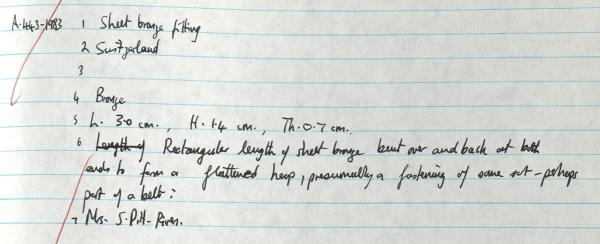 A.443-1983 1 Sheet bronze fitting
2 Switzerland
3
4 Bronze
5 L. 3.0 cm., H. 1.4 cm., Th. 0.7 cm.
6 Length of Rectangular length of sheet bronze bent over and back at both
ends to form a flattened hoop, presumably a fastening of some sort - perhaps
part of a belt:
7 Mrs. S. Pitt-Rivers.